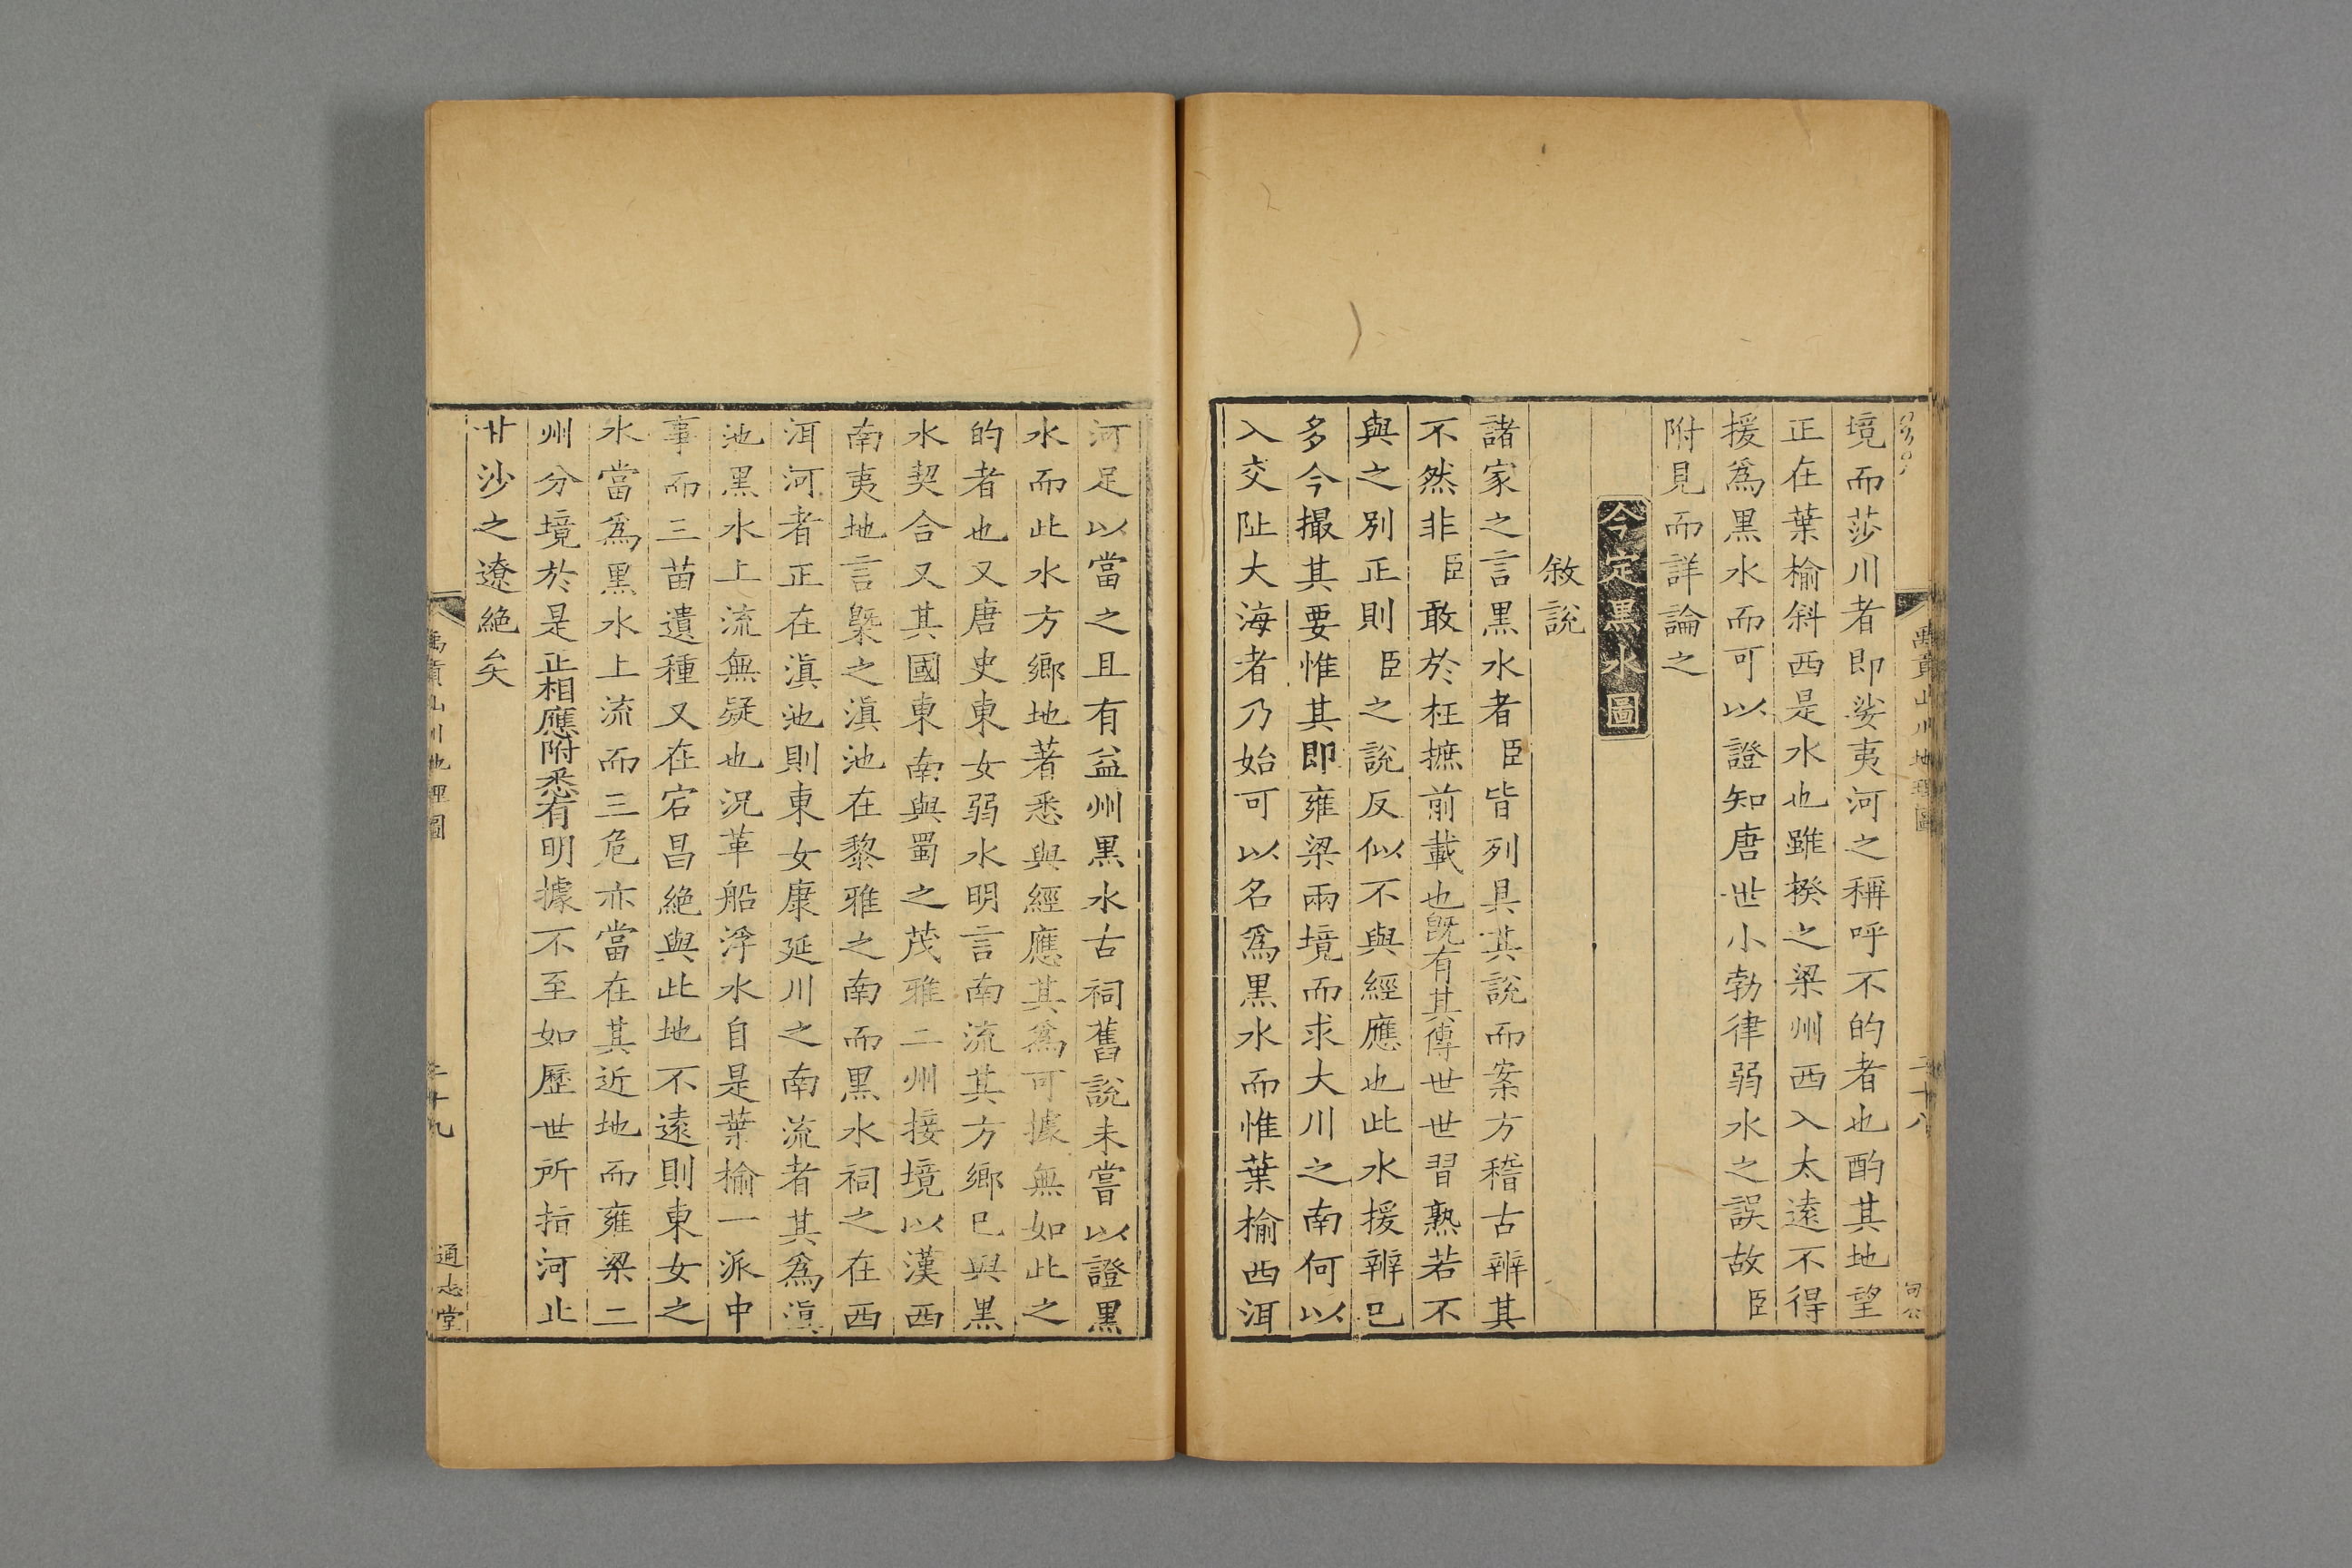 境而莎川者即娑夷河之稱呼不的者也酌其地望
正在葉榆斜西是水也雖揆之梁州西入太遠不得
援爲黑水而可以證知唐世小勃律弱水之誤故臣
附見而詳論之
今定黑水圖
敘說
諸家之言黑水者臣皆列具其說而案方稽古辨其
不然非臣敢於枉摭前載也旣有其傳世世習熟若不
與之別正則臣之說反似不與經應也此水援辨已
多今撮其要惟其即雍梁兩境而求大川之南何以
入交阯大海者乃始可以名爲黑水而惟葉榆西洱
禹貢山川地理圖
二十八
河足以當之且有益州黑水古祠舊說未嘗以證黑
水而此水方鄉地著悉與經應其爲可據無如此之
的者也又唐史東女弱水明言南流其方鄉已與黑
水契合又其國東南與蜀之茂雅二州接境以漢西
南夷地言槩之滇池在黎雅之南而黑水祠之在西
洱河者正在滇池則東女康延川之南流者其爲滇
池黑水上流無疑也況革船浮水自是葉榆一派中
事而三苗遺種又在宕昌絶與此地不遠則東女之
水當爲黑水上流而三危亦當在其近地而雍梁二
州分境於是正相應附悉有明據不至如歷世所指河北
廿沙之遼絶矣
禹貢山川地理圖
二十九
通志堂